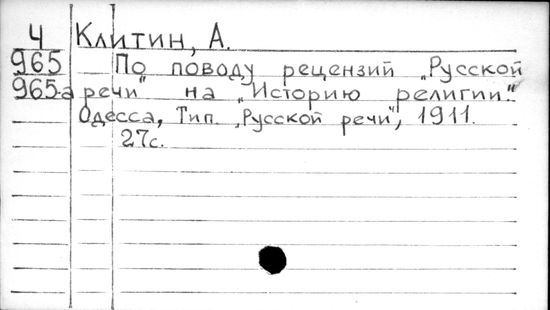 Ч Клитин, А.
965 По поводу рецензий „Русской
965-а речи" на „Историю религии".
Одесса, Тип. „Русской речи", 1911.
27с.